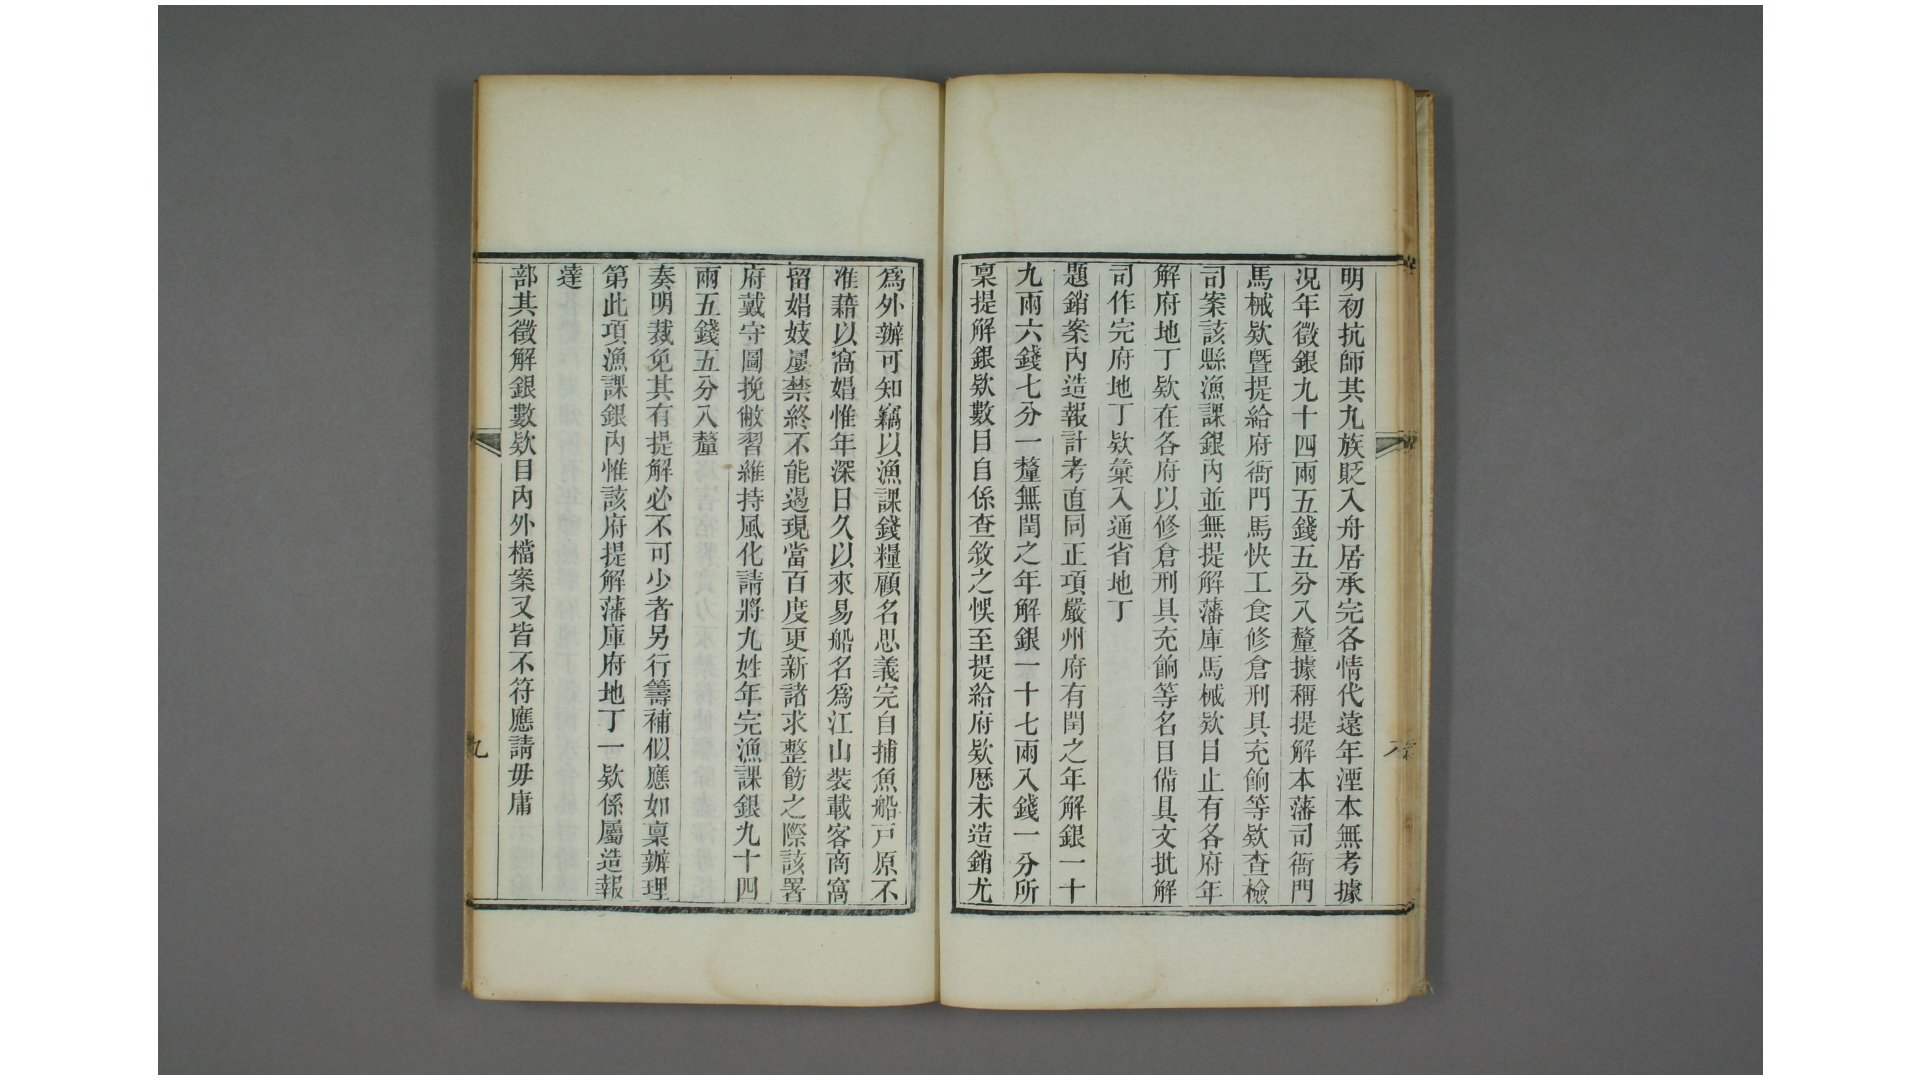 明初抗師其九族貶入舟居承完各情代遠年湮本無考據
况年徵銀九十四兩五錢五分八釐據稱提解本藩司衙門
馬械欵暨提給府衙門馬快工食修倉刑具充餉等欵查檢
司案該縣漁課銀內並無提解藩庫馬械欵目止有各府年
解府地丁欵在各府以修倉刑具充餉等名目備具文批解
司作完府地丁欵彙入通省地丁
題銷案內造報計考直同正項嚴州府有閏之年解銀一十
九兩六錢七分一釐無閏之年解銀一十七兩八錢一分所
稟提解銀欵數目自係查敘之悞至提給府欵歷未造銷尤
爲外辦可知竊以漁課錢糧顧名思義完自捕魚船戸原不
准藉以窩娼惟年深日久以來易船名爲江山裝載客商窩
留娼妓屢禁終不能遏現當百度更新諸求整飭之際該署
府戴守圖挽敝習維持風化請將九姓年完漁課銀九十四
兩五錢五分八釐
奏明裁免其有提解必不可少者另行籌補似應如稟辦理
第此項漁課銀內惟該府提解藩庫府地丁一欵係屬造報
達
部其徵解銀數欵目內外檔案又皆不符應請毋庸
九